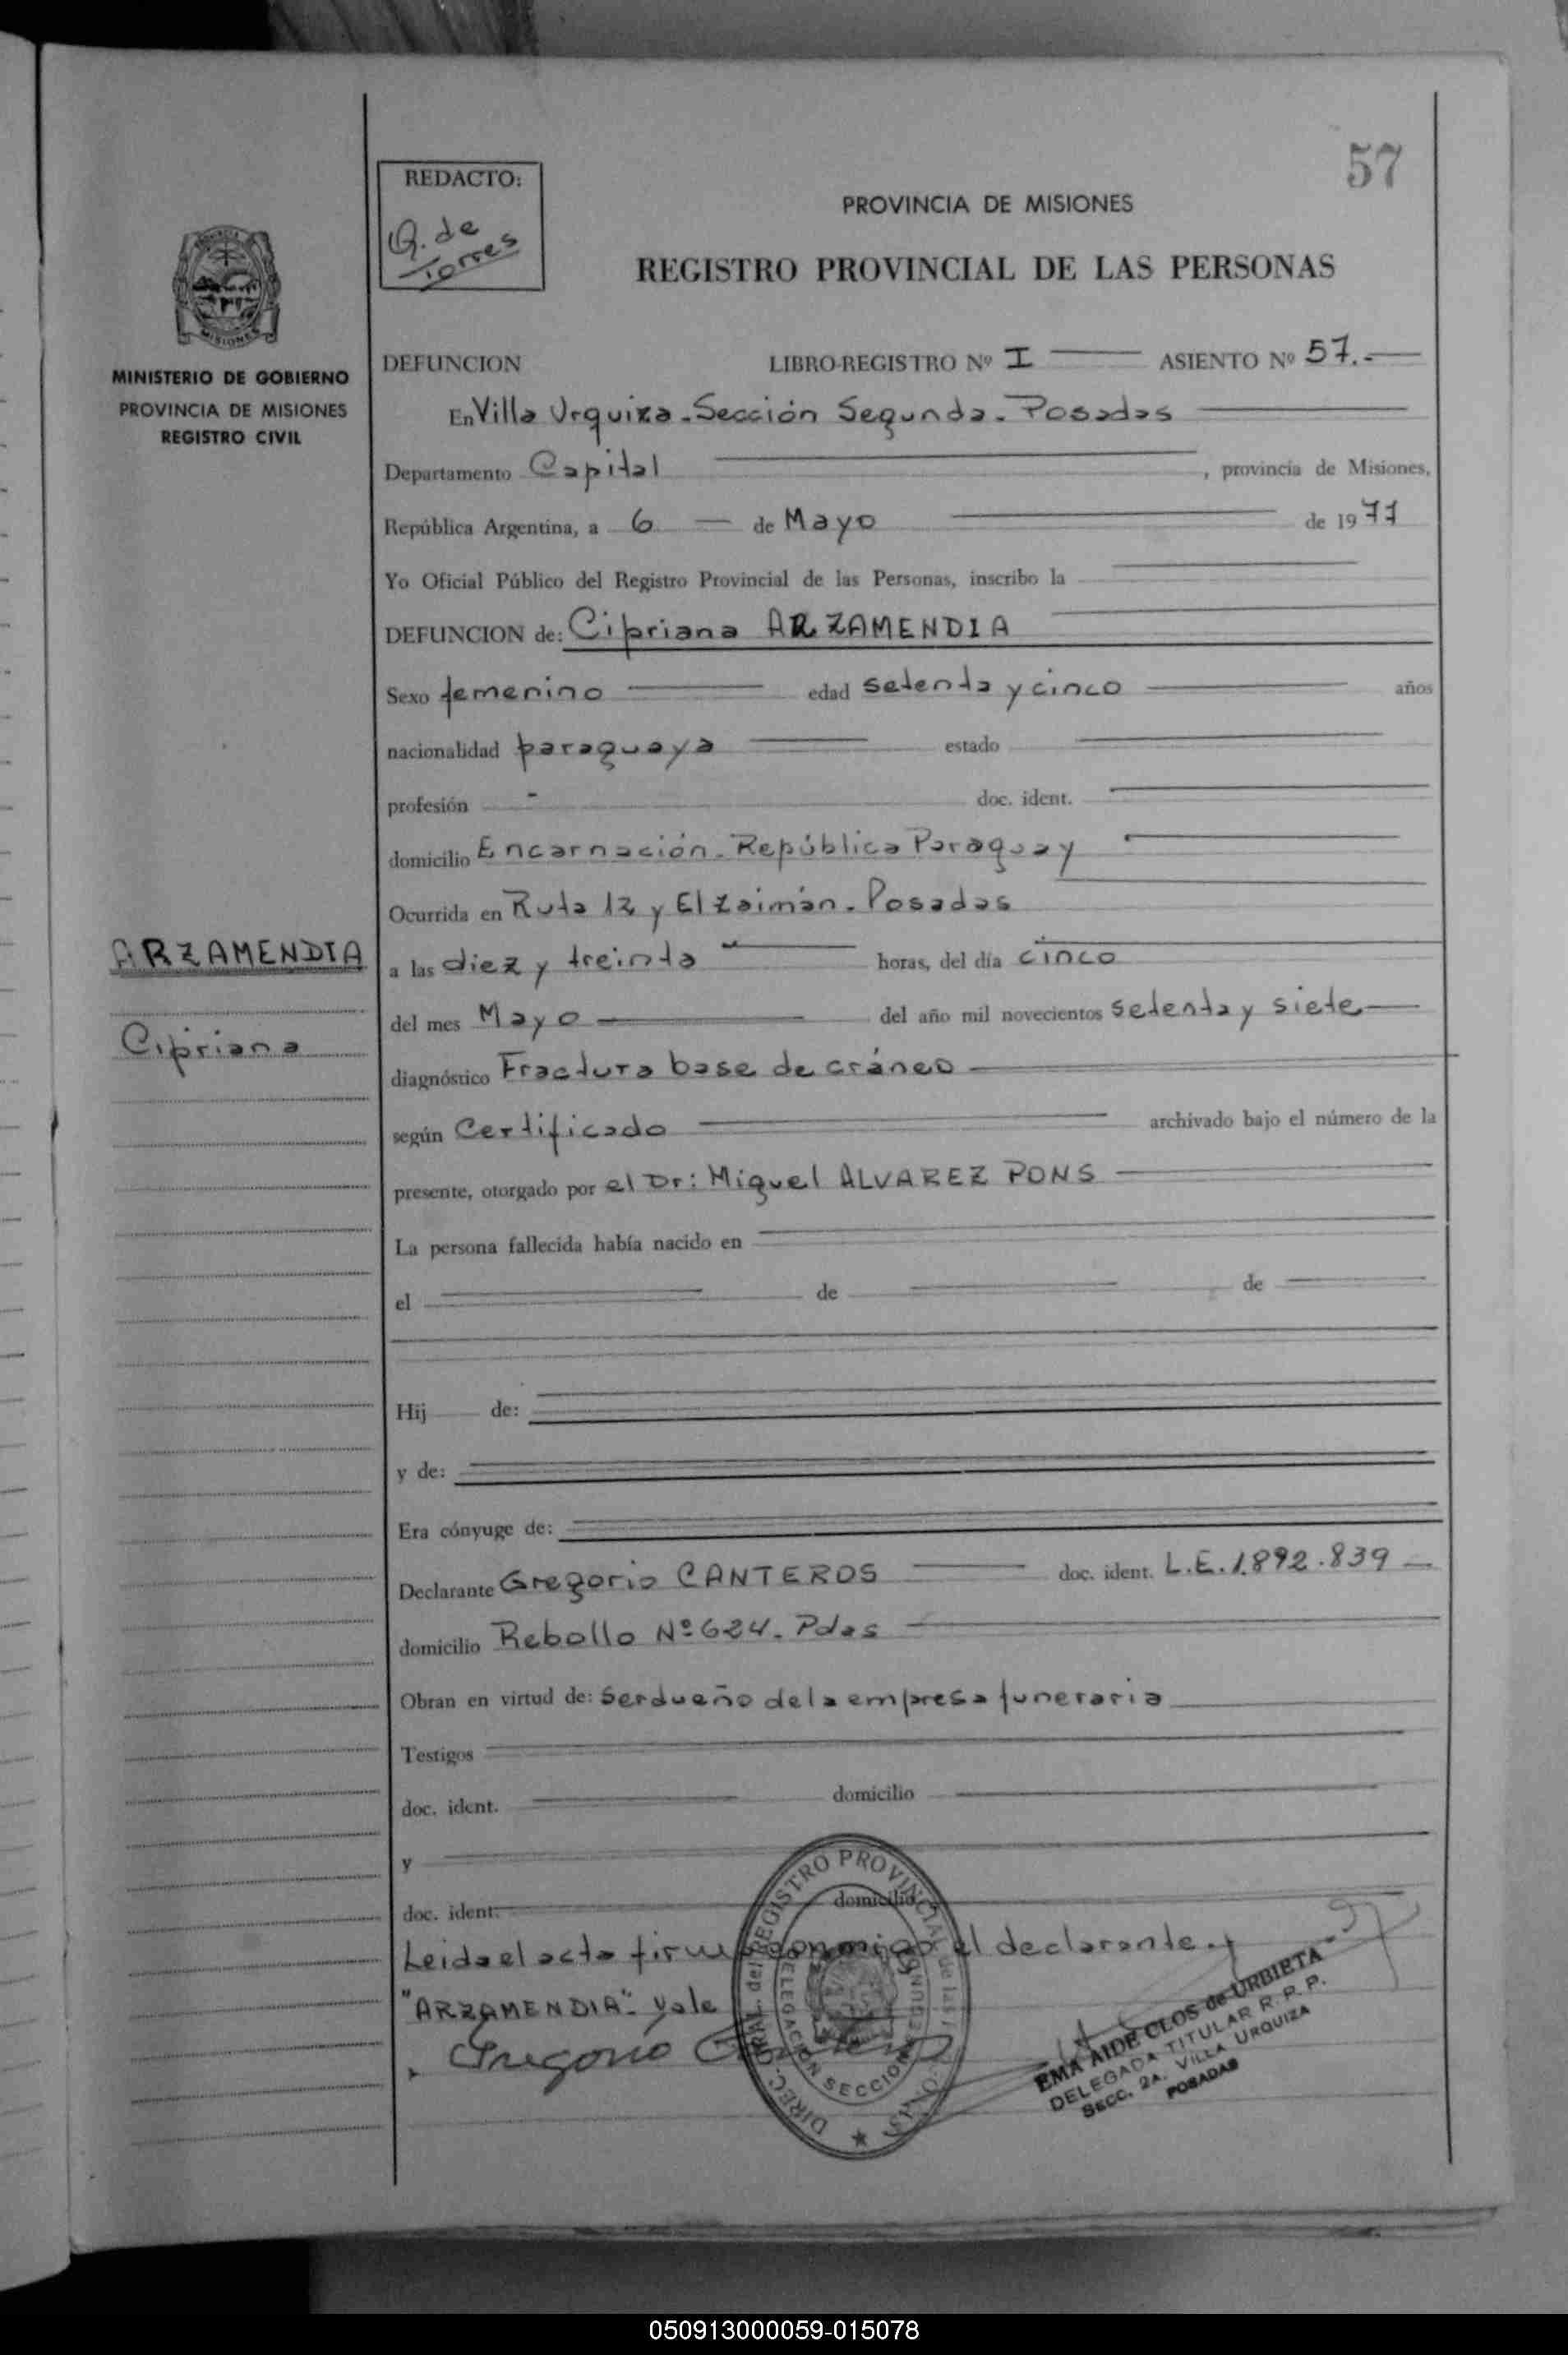 57
REDACTO:
Q. de
Torres
PROVINCIA DE MISIONES
REGISTRO PROVINCIAL DE LAS PERSONAS
MISIONES
MINISTERIO DE GOBIERNO
PROVINCIA DE MISIONES
REGISTRO CIVIL
DEFUNCION LIBRO-REGISTRO Nº I ASIENTO Nº 57.-
En Villa Urquiza - Sección Segunda - Posadas
Departamento Capital , provincia de Misiones,
República Argentina, a 6 de Mayo de 1977
Yo Oficial Público del Registro Provincial de las Personas, inscribo la
DEFUNCION de: Cipriana ARZAMENDIA
Sexo femenino edad setenta y cinco años
nacionalidad paraguaya estado
profesión - doc. ident.
domicilio Encarnación - República Paraguay
Ocurrida en Ruta 12 y El Zaimán - Posadas
ARZAMENDIA
Cipriana
a las diez y treinta horas, del día cinco
del mes Mayo del año mil novecientos setenta y siete
diagnóstico Fractura base de cráneo
según Certificado archivado bajo el número de la
presente, otorgado por el Dr: Miguel ALVAREZ PONS
La persona fallecida había nacido en
el de de
Hij de:
y de:
Era cónyuge de:
Declarante Gregorio CANTEROS doc. ident. L.E. 1.892.839
domicilio Rebollo Nº 624. Pdas
Obran en virtud de: Ser dueño de la empresa funeraria
Testigos
doc. ident. domicilio
y
doc. ident. domicilio
Leida el acta firma conmigo el declarante.
"ARZAMENDIA" - Vale
Gregorio Canteros
DIREC. GRAL. del REGISTRO PROVINCIAL de las PERSONAS
DELEGACION SECCION SEGUNDA
EMA AIDE CLOS de URBIETA
DELEGADA TITULAR R. P. P.
SECC. 2A. VILLA URQUIZA
POSADAS
050913000059-015078